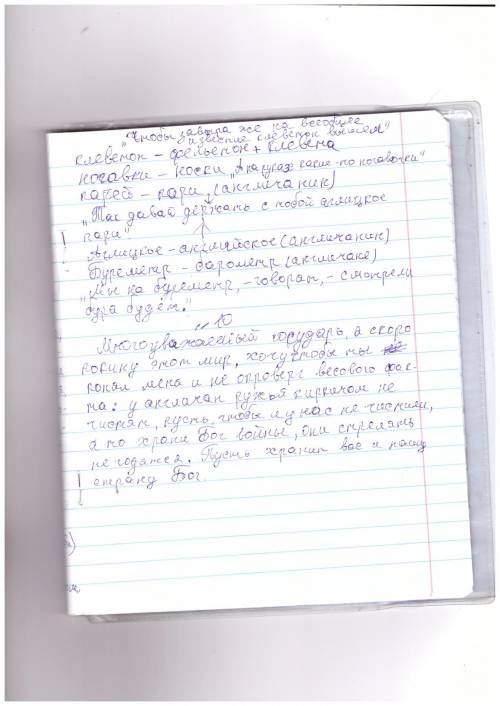 "Чтобы завтра же на всеобщее
известие клеветон вышел"
клеветон - фельетон + клевета
ногавки - носки "А на руках какие-то ногавочки"
парей - пари, (англичанин)
"Так давай держать с тобой аглицкое
пари"
Аглицкое - английское (англичанин)
Буреметр - барометр (англичане)
"Мы на буреметр, - говорят, - смотрели
буря будет."
"10
Многоуважаемый государь, а скоро
покину этот мир, хочу чтобы ты
понял меня и не опроверг весового фак-
та: у англичан ружья кирпичом не
чистят, пусть чтобы и у нас не чистили,
а то храни Бог войны, они стрелять
не годятся. Пусть хранит вас и нашу
страну Бог.